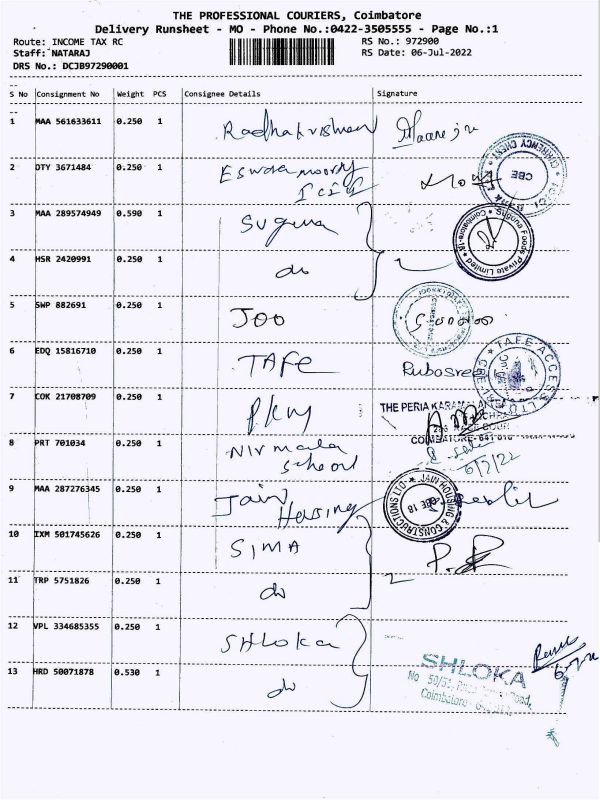 THE PROFESSIONAL COURIERS, Coimbatore
Delivery Runsheet - MO - Phone No.:0422-3505555 - Page No.:1
Route: INCOME TAX RC RS No.: 972900
Staff: NATARAJ RS Date: 06-Jul-2022
DRS No.: DCJB97290001
S No Consignment No Weight PCS Consignee Details Signature
1 MAA 561633611 0.250 1 Radhakrishnan
2 DTY 3671484 0.250 1 Eswaramoorthy
CURRENCY CHEST CBE
3 MAA 289574949 0.590 1 Suguna
Suguna Foods Private Limited Coimbatore-18
4 HSR 2420991 0.250 1 do 2
5 SWP 882691 0.250 1 JOO
6 EDQ 15816710 0.250 1 TAFE
TAFE ACCESS LTD
7 COK 21708709 0.250 1 PKM
THE PERIA KARAMALAI
COIMBATORE-641 018
8 PRT 701034 0.250 1 Nirmala
school
6/7/22
9 MAA 287276345 0.250 1 Jain
Housing
JAIN HOUSING & CONSTRUCTIONS LTD CBE 18
10 IXM 501745626 0.250 1 SIMA
11 TRP 5751826 0.250 1 do 2
12 VPL 334685355 0.250 1 SHLOKA
SHLOKA
13 HRD 50071878 0.530 1 do
No 50/51, Road,
Coimbatore